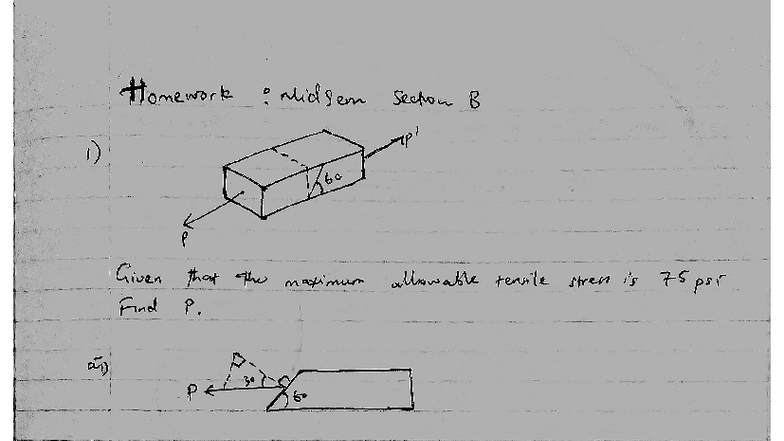 Homework : Midsem Section B
1)
P'
60
P
Given that the maximum allowable tensile stress is 75 psi
Find P.
P
30
60